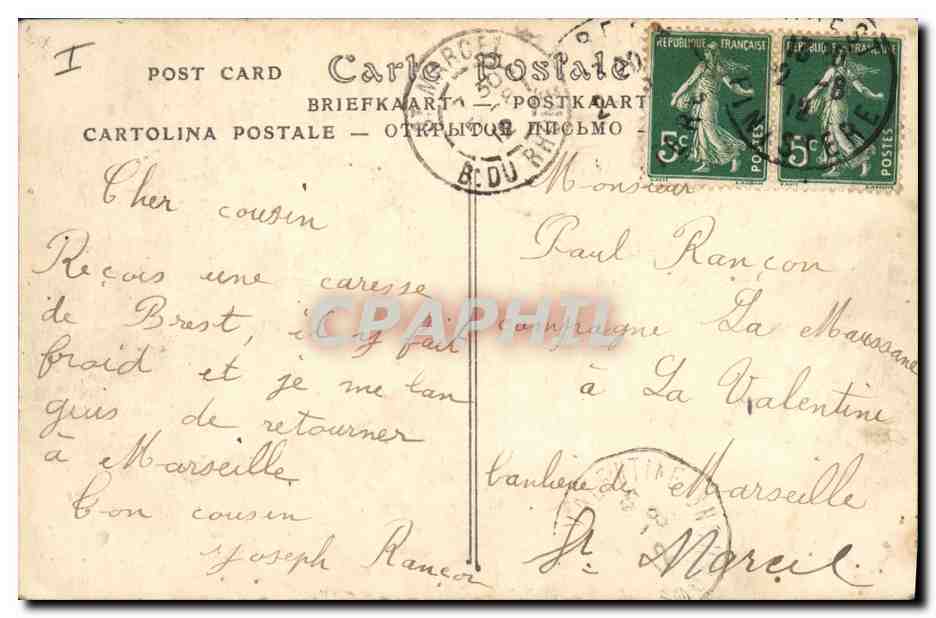 I
POST CARD
Carte Postale
BRIEFKAART — POSTKAART
CARTOLINA POSTALE — ОТКРЫТОЕ ПИСЬМО —
Cher cousin
Reçois une caresse
de Brest, il y fait
froid et je me lan
guis de retourner
à Marseille
Ton cousin
Joseph Rançon
Monsieur
Paul Rançon
campagne La Maussane
à La Valentine
banlieue de Marseille
St. Marcel
RÉPUBLIQUE FRANÇAISE
5c
POSTES
RÉPUBLIQUE FRANÇAISE
5c
POSTES
MARCEL
30
12
Bs DU RH
FINISTERE
2 -8
12
CPAPHIL